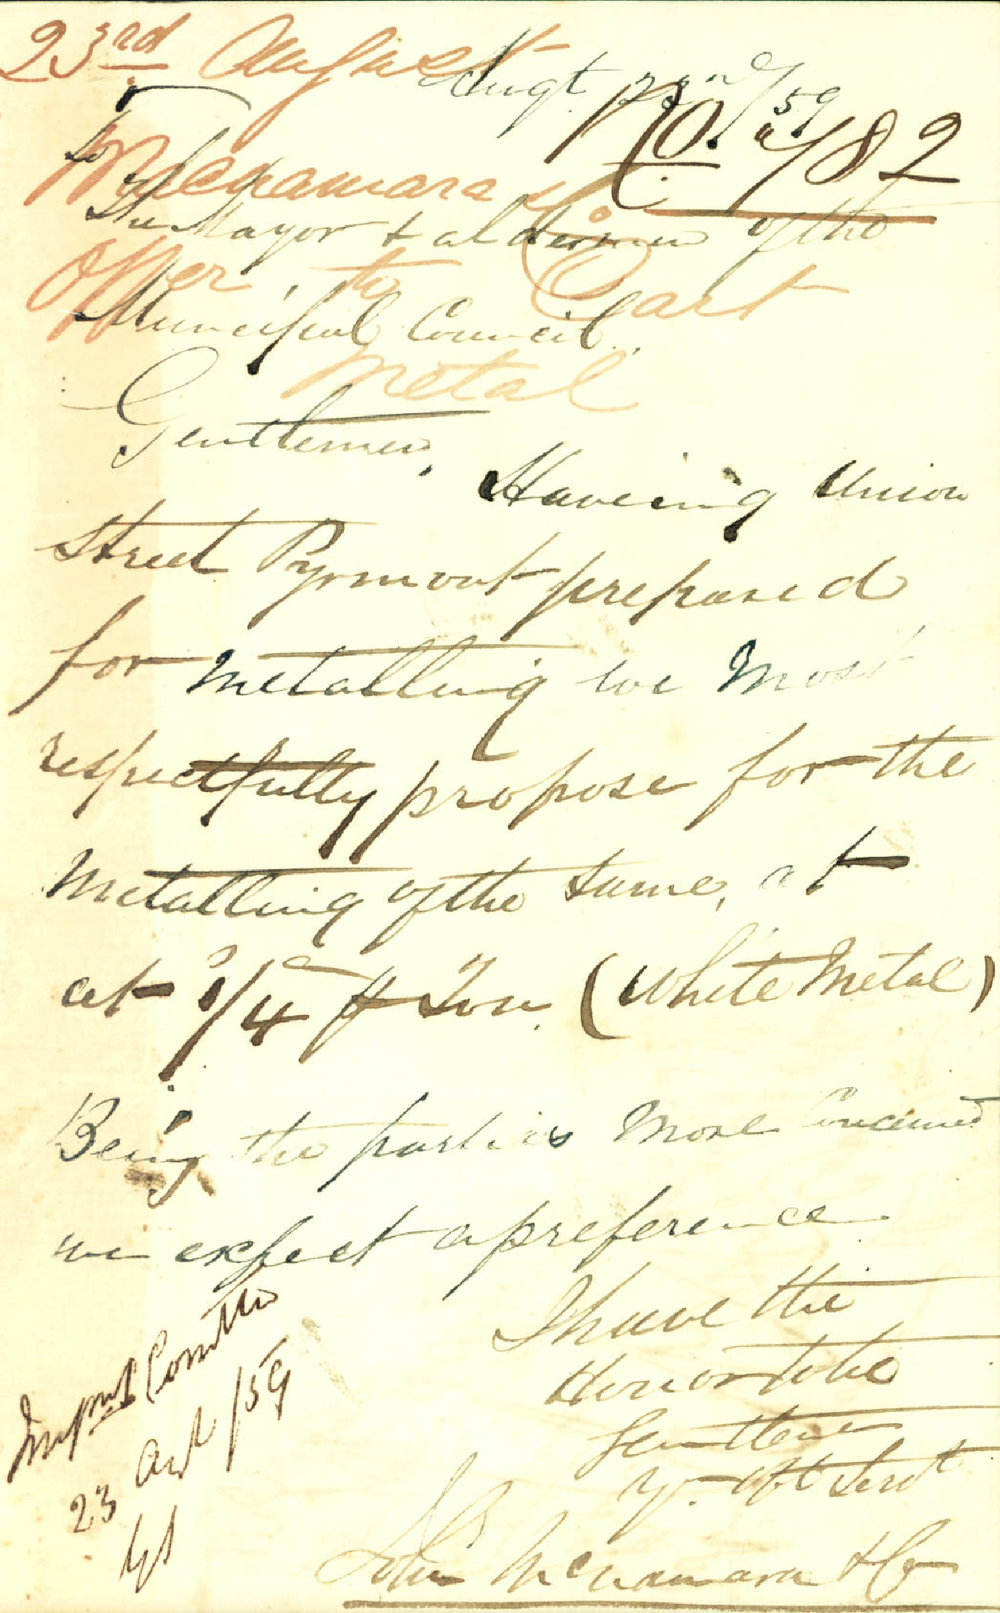 23rd August
Augt 23rd/59
No. 782
Macnamara & Co
offer to Cart
Metal
To
The Mayor & aldermen of the
Municipal Council.
Gentlemen,
Haveing Union
Street Pyrmont prepared
for metalling we Most
respectfully propose for the
Metalling of the Same, at
at 8/4 Ton (White Metal)
Being the parties More Concerned
we expect a preference
I have the
Honor to be
Gentlemen
Yr. Obt Servt
John McNamara & Co
Impmt Comttee
23 Aut /59